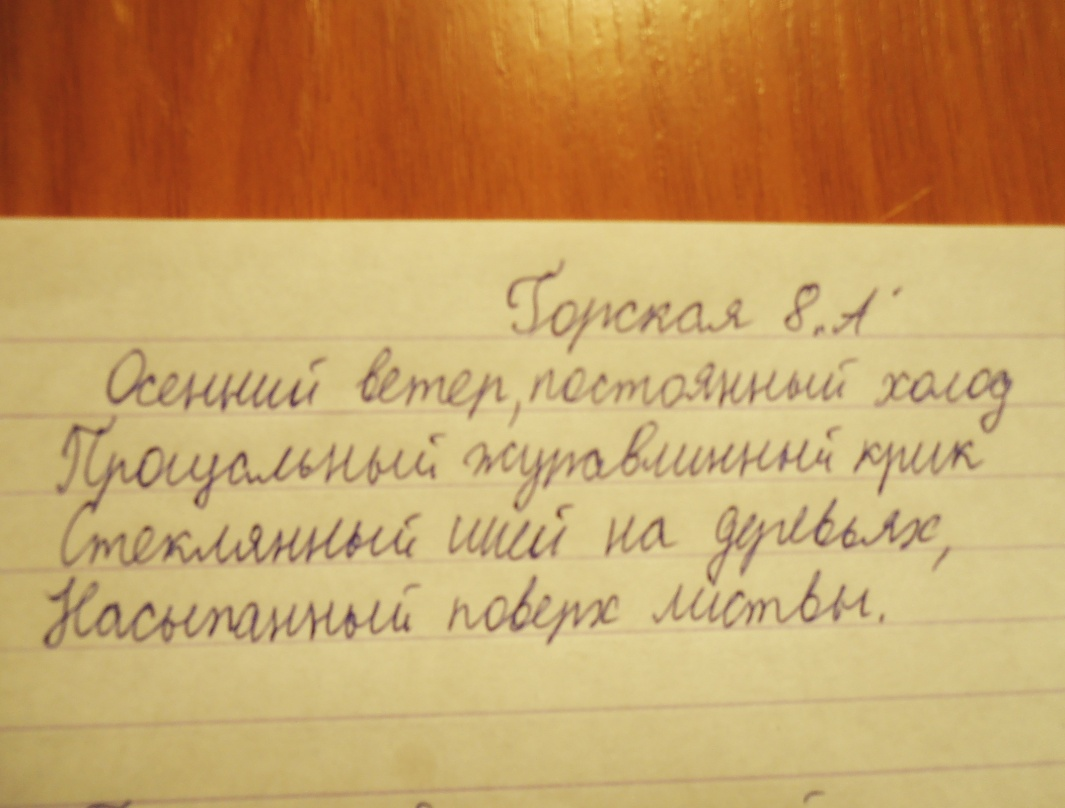 Горская 8„А"
Осенний ветер, постоянный холод
Прощальный журавлинный крик
Стеклянный иней на деревьях,
Насыпанный поверх листвы.